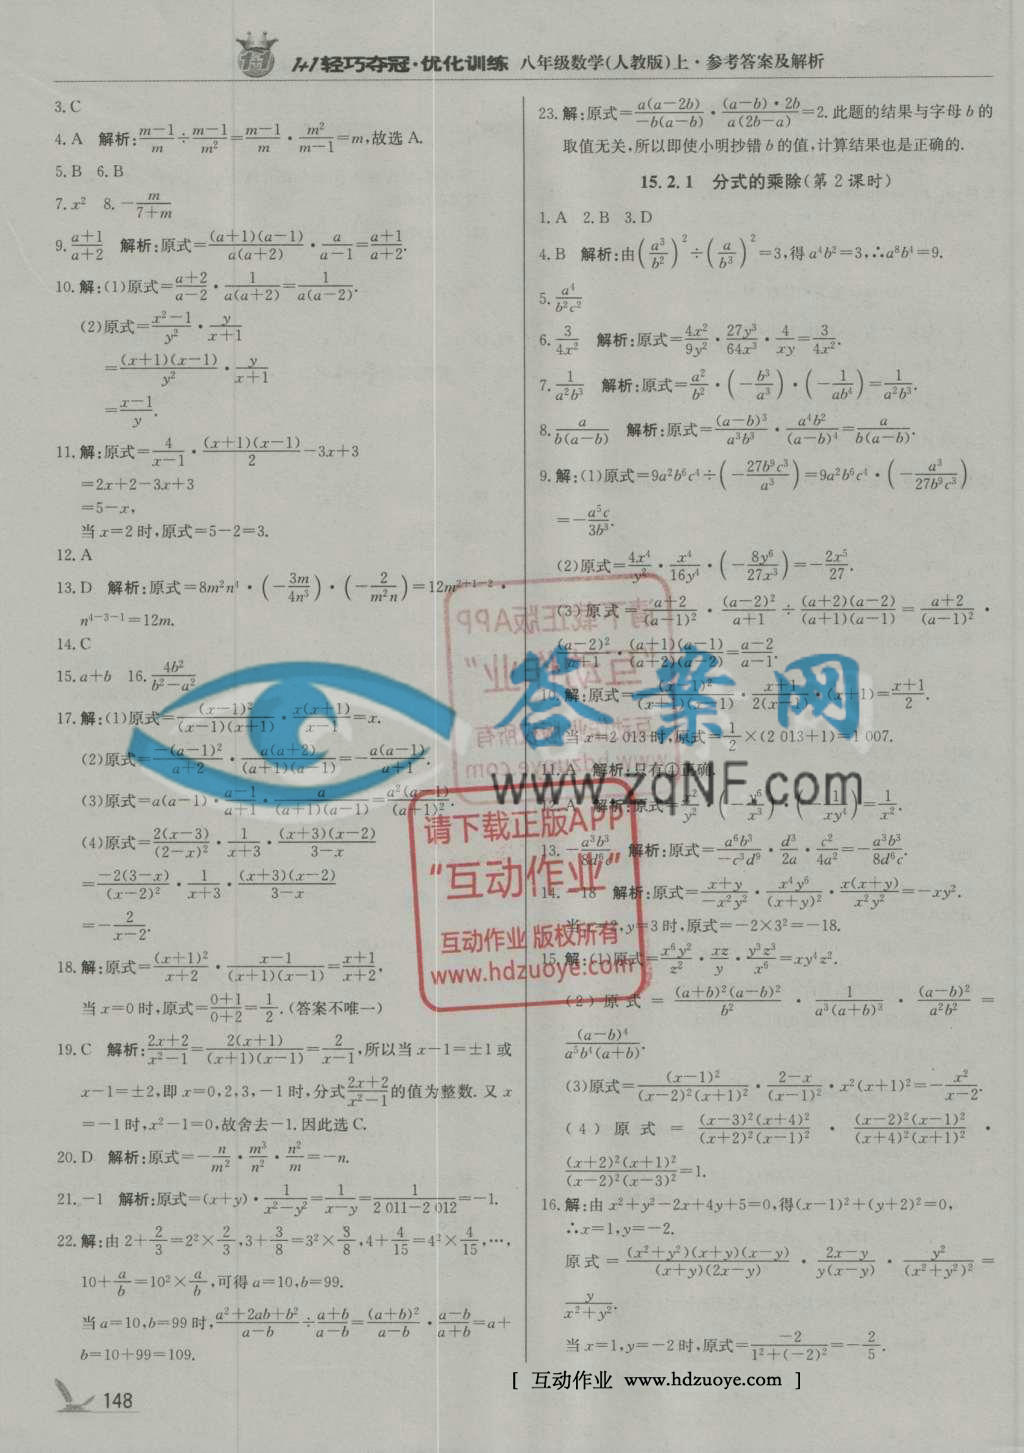 1+1轻巧夺冠·优化训练 八年级数学(人教版)上·参考答案及解析
3. C
4. A 解析:(m-1)/m÷(m-1)/m²=(m-1)/m·m²/(m-1)=m,故选 A.
5. B 6. B
7. x² 8. -m/(7+m)
9. (a+1)/(a+2) 解析:原式=(a+1)(a-1)/a(a+2)·a/(a-1)=(a+1)/(a+2).
10. 解:(1)原式=(a+2)/(a-2)·1/a(a+2)=1/a(a-2).
(2)原式=(x²-1)/y²·y/(x+1)
=(x+1)(x-1)/y²·y/(x+1)
=(x-1)/y.
11. 解:原式=4/(x-1)·(x+1)(x-1)/2-3x+3
=2x+2-3x+3
=5-x,
当 x=2 时,原式=5-2=3.
12. A
13. D 解析:原式=8m²n⁴·(-3m/4n³)·(-2/m²n)=12m²⁺¹⁻²·
n⁴⁻³⁻¹=12m.
14. C
15. a+b 16. 4b²/(b²-a²)
17. 解:(1)原式=(x-1)²/(x-1)(x+1)·x(x+1)/(x-1)=x.
(2)原式=-(a-1)²/(a+2)·a(a+2)/(a+1)(a-1)=-a(a-1)/(a+1).
(3)原式=a(a-1)·(a-1)/(a+1)·a/(a+1)(a-1)=a²(a-1)/(a+1)².
(4)原式=2(x-3)/(2-x)²·1/(x+3)·(x+3)(x-2)/(3-x)
=-2(3-x)/(x-2)²·1/(x+3)·(x+3)(x-2)/(3-x)
=-2/(x-2).
18. 解:原式=(x+1)²/(x+2)·(x-1)/(x+1)(x-1)=(x+1)/(x+2),
当 x=0 时,原式=(0+1)/(0+2)=1/2.(答案不唯一)
19. C 解析:(2x+2)/(x²-1)=2(x+1)/(x+1)(x-1)=2/(x-1),所以当 x-1=±1 或
x-1=±2,即 x=0,2,3,-1 时,分式(2x+2)/(x²-1)的值为整数. 又 x
=-1时,x²-1=0,故舍去-1. 因此选 C.
20. D 解析:原式=-n/m²·m³/n²·n²/m=-n.
21. -1 解析:原式=(x+y)·1/(x²-y²)=1/(x-y)=1/(2 011-2 012)=-1.
22. 解:由 2+2/3=2²×2/3,3+3/8=3²×3/8,4+4/15=4²×4/15,…,
10+a/b=10²×a/b,可得 a=10,b=99.
当 a=10,b=99 时,(a²+2ab+b²)/(a-b)÷(a+b)/(a-b)=(a+b)²/(a-b)·(a-b)/(a+b)=a+
b=10+99=109.
148
23. 解:原式=a(a-2b)/-b(a-b)·(a-b)·2b/a(2b-a)=2. 此题的结果与字母 b 的
取值无关,所以即使小明抄错 b 的值,计算结果也是正确的.
15.2.1 分式的乘除(第 2 课时)
1. A 2. B 3. D
4. B 解析:由(a³/b²)²÷(a/b³)²=3,得 a⁴b²=3,∴a⁸b⁴=9.
5. a⁴/b²c²
6. 3/4x² 解析:原式=4x²/9y²·27y³/64x³·4/xy=3/4x².
7. 1/a²b³ 解析:原式=a²/b²·(-b³/a³)·(-1/ab⁴)=1/a²b³.
8. a/b(a-b) 解析:原式=(a-b)³/a³b³·a⁴b²/(a-b)⁴=a/b(a-b).
9. 解:(1)原式=9a²b⁶c⁴÷(-27b⁹c³/a³)=9a²b⁶c⁴·(-a³/27b⁹c³)
=-a⁵c/3b³.
(2)原式=4x⁴/y²·x⁴/16y⁴·(-8y⁶/27x³)=-2x⁵/27.
(3)原式=(a+2)/(a-1)²·(a-2)²/(a+1)÷(a+2)(a-2)/(a+1)(a-1)=(a+2)/(a-1)²·
(a-2)²/(a+1)·(a+1)(a-1)/(a+2)(a-2)=(a-2)/(a-1).
10. 解:原式=(x-1)²/(x+1)(x-1)·(x+1)/2(x-1)·(x+1)=(x+1)/2.
当 x=2 013 时,原式=1/2×(2 013+1)=1 007.
11. A 解析:只有④正确.
A 解析:原式=x²/y²·(-y⁶/x³)·(-1/xy⁴)=1/x².
13. -a³b³/8d⁶c 解析:原式=a⁶b³/-c³d⁹·d³/2a·c²/4a²=-a³b³/8d⁶c.
14. -18 解析:原式=(x+y)/-x²y²·x⁴y⁶/(x+y)²·x(x+y)/x²y²=-xy².
当 x=2,y=3 时,原式=-2×3²=-18.
15. 解:(1)原式=x⁶y²/z²·xz/y·y³z³/x⁶=xy⁴z².
(2)原式=(a+b)²(a-b)²/b²·1/a³(a+b)³·(a-b)²/a²b²=
(a-b)⁴/a⁵b⁴(a+b).
(3)原式=(x-1)²/(x-2)²(x+1)²·(2-x)/(x-1)²·x²(x+1)²=-x²/(x-2).
(4)原式=(x-3)²(x+4)²/(x+2)²(x-1)²·(x-2)²(x-1)²/(x+4)²(x+1)²·
(x+2)²(x+1)²/(x-2)²(x-3)²=1.
16. 解:由 x²+y²-2x+4y+5=0,得(x-1)²+(y+2)²=0,
∴x=1,y=-2.
原式=(x²+y²)(x+y)(x-y)/(x+y)(2x-y)·(2x-y)/y(x-y)·y²/(x²+y²)²=
y/(x²+y²).
当 x=1,y=-2 时,原式=-2/(1²+(-2)²)=-2/5.
[ 互动作业 www.hdzuoye.com ]
答案网
www.zqNF.com
请下载正版APP
“互动作业”
互动作业 版权所有
www.hdzuoye.com